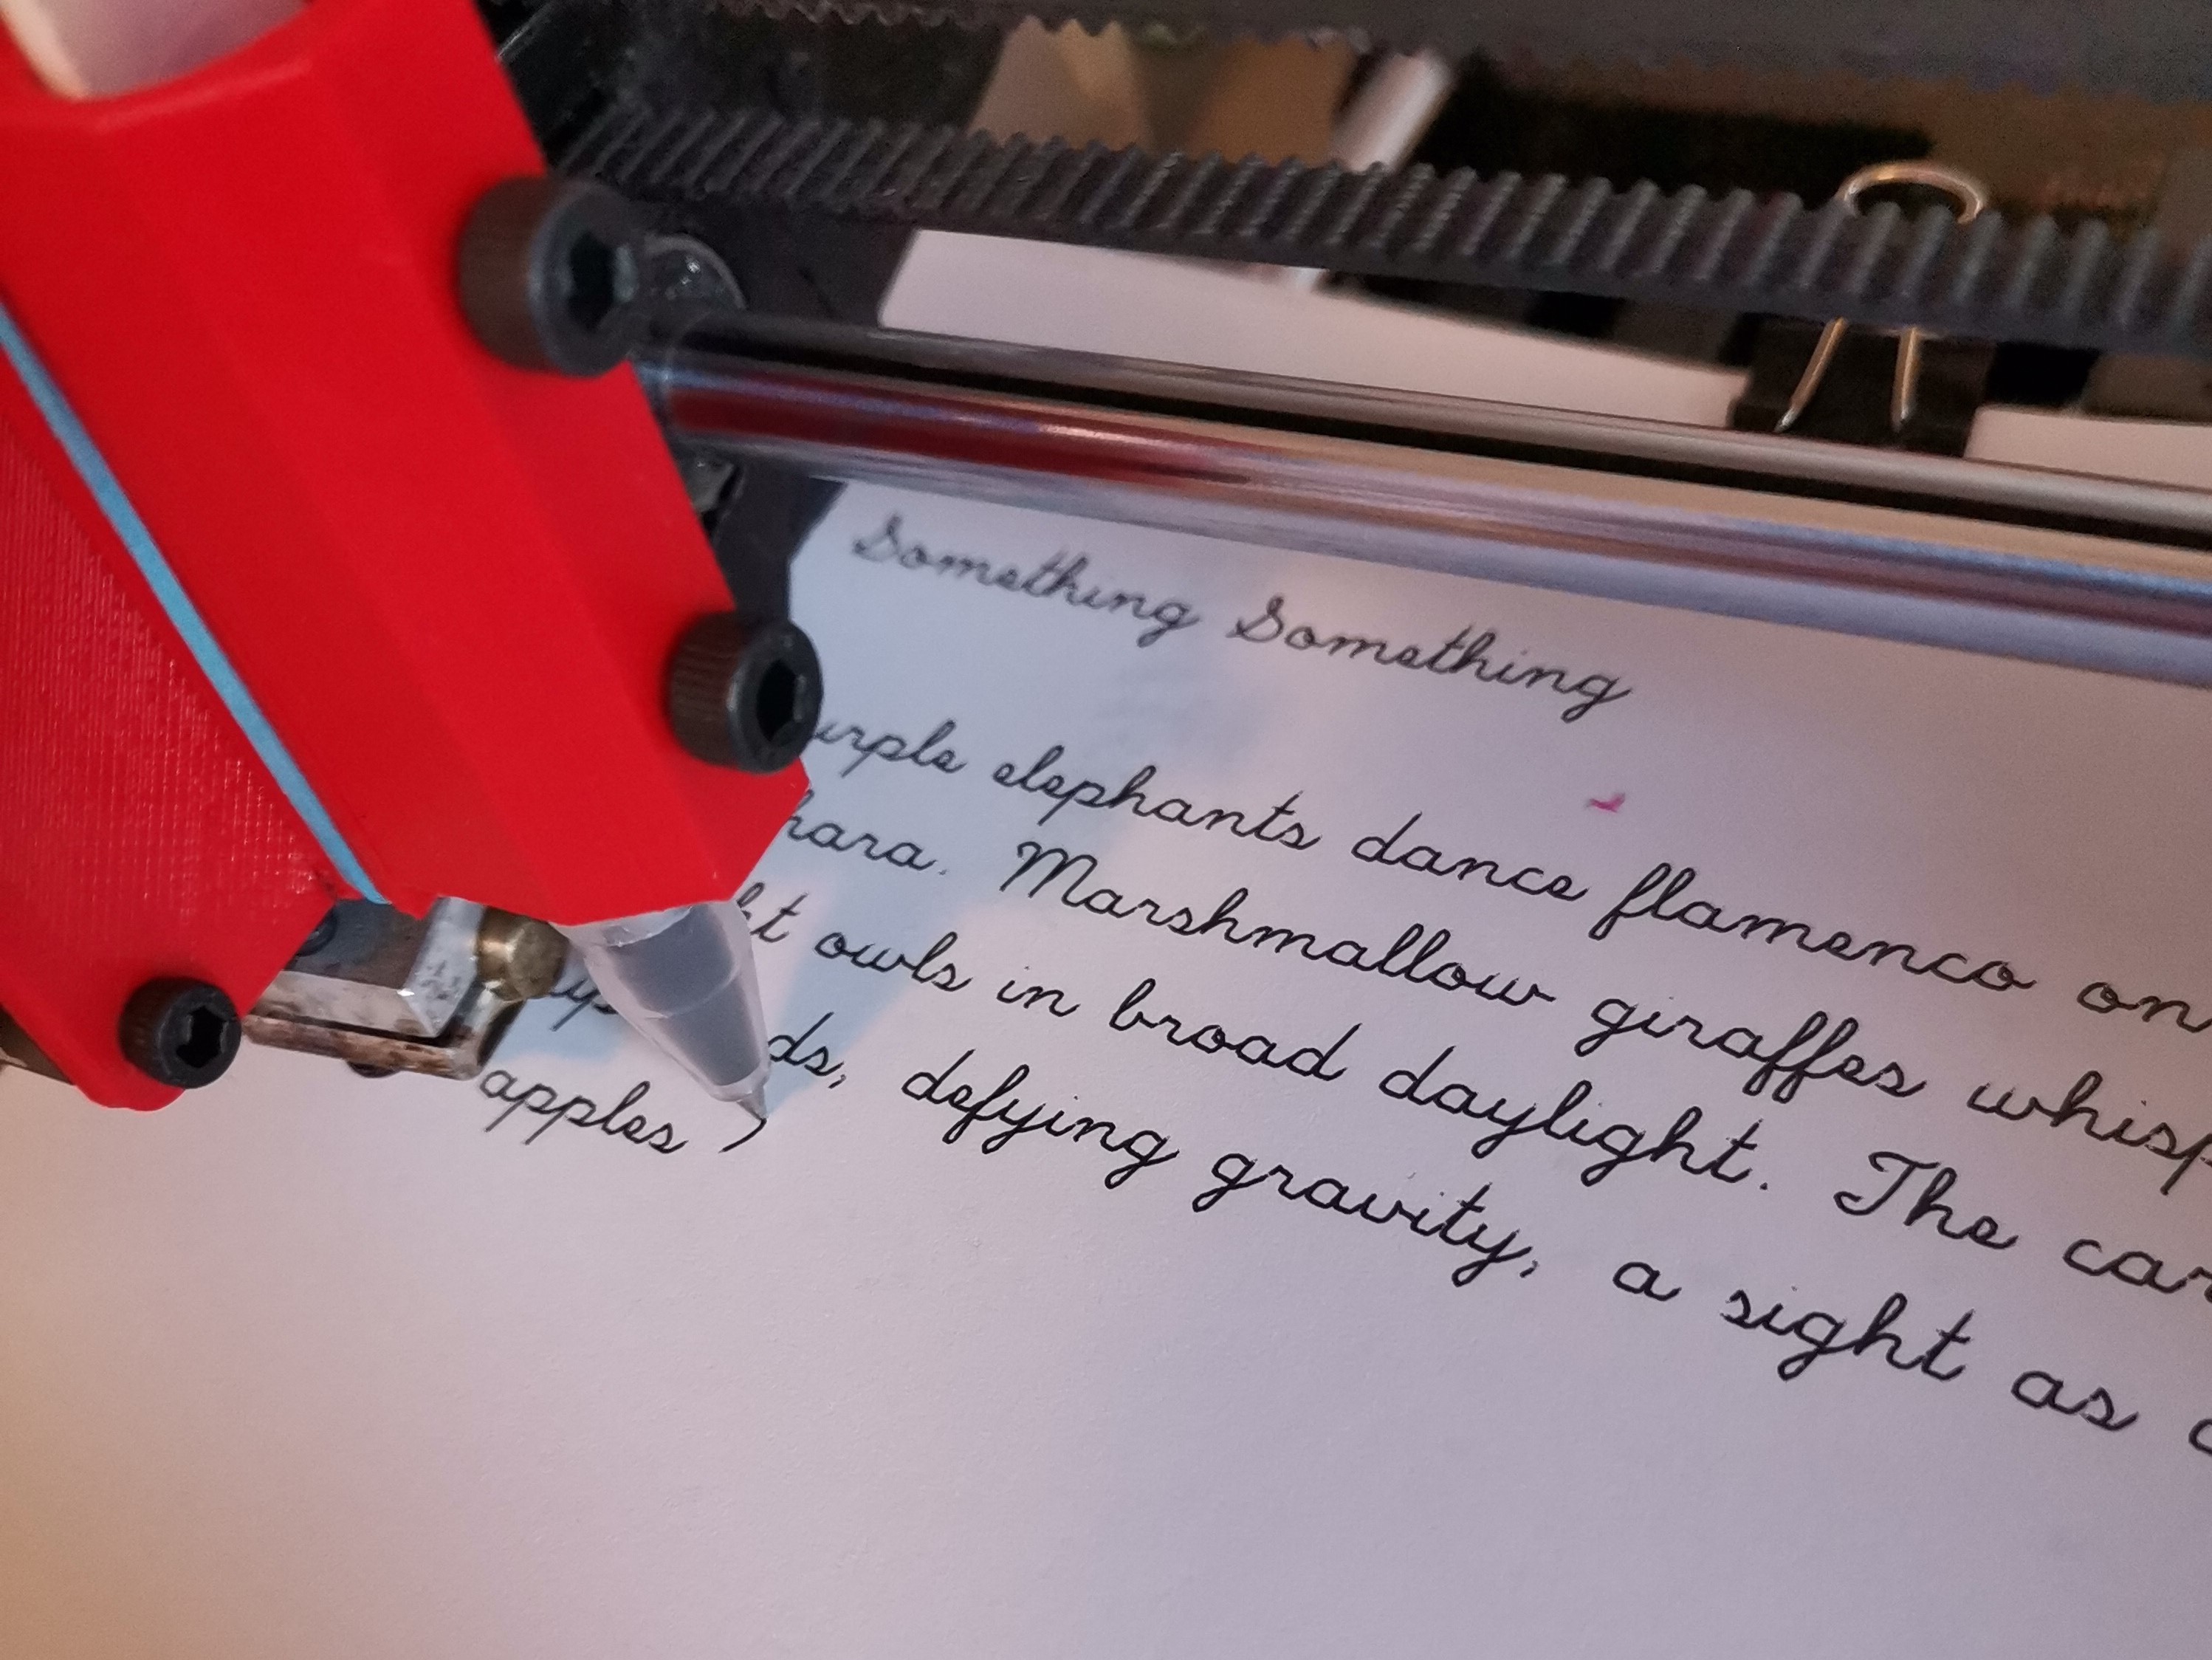 Something Something
urple elephants dance flamenco on
hara. Marshmallow giraffes whisp
ht owls in broad daylight. The car
ds, defying gravity, a sight as
apples